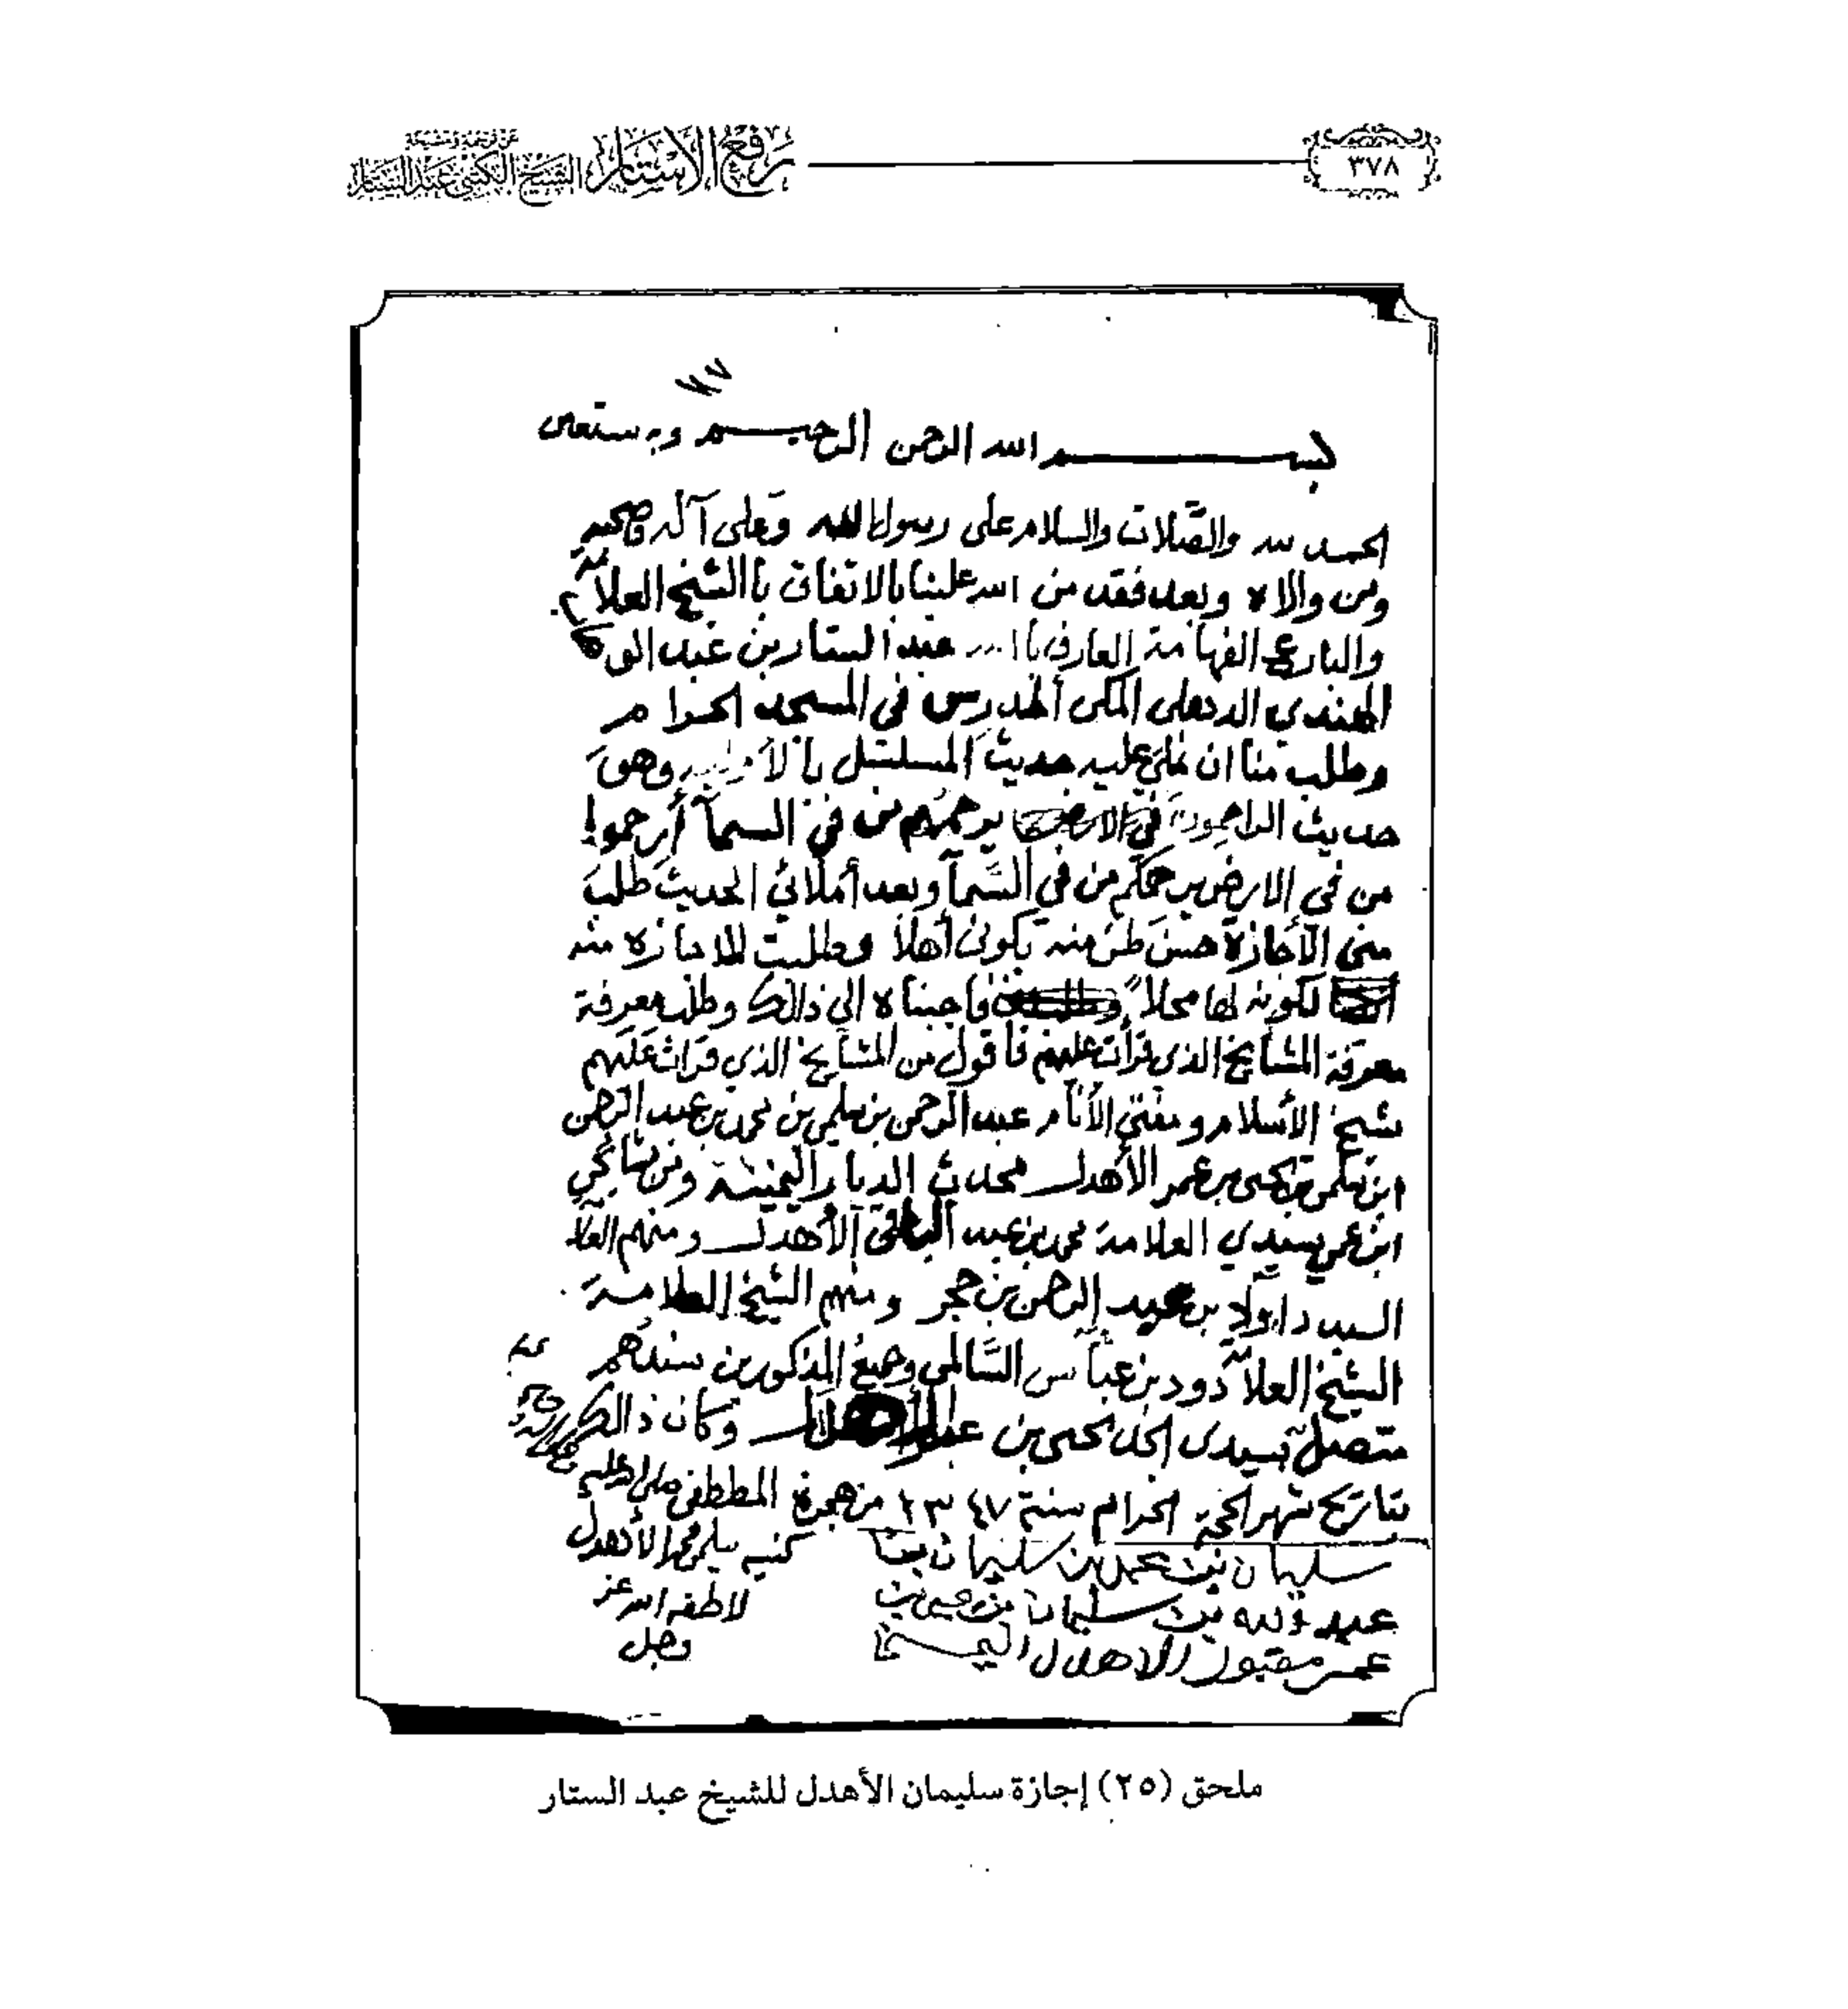 ٣٧٨
رفع الأستار الشيخ الكتبي عبد الستار
بسم الله الرحمن الرحيم وبه نستعين
الحمد لله والصلات والسلام على رسول الله وعلى آله وصحبه
ومن والاه وبعد فقد من الله علينا بالاتفاق باالشيخ العلامة
والبارع الفهامة العارف باالله عبد الستار بن عبد الوهاب
الهندي الدهلي المكي المدرس في المسجد الحرام
وطلب منا ان نملي عليه حديث المسلسل بالأولية وهو
حديث الراحمون في الارض يرحمهم من في السمآ أرحموا
من في الارض يرحمكم من في السمآ وبعد أملائي الحديث طلب
مني الأجازة حسن ظن منه بكوني أهلا وطلبت للاجازه منه
لكونه لها محلا فاجبناه الى ذالك وطلب معرفة
معرفة المشايخ الذي قرأت عليهم فاقول من المشايخ الذي قرات عليهم
شيخ الأسلام ومفتي الأنام عبد الرحمن بن سليمن بن محمد بن عبد الرحمن
ابن سليمن بن يحيى بن عمر الأهدل محدث الديار اليمنية ومن مشائخي
ابن عمي سيدي العلامة محمد بن عبد الباقي الأهدل ومنهم
السيد داوود بن عبد الرحمن بن حجر ومنهم الشيخ العلامة
الشيخ العلامة دود بن عباس السالمي وجميع المذكورين سندهم
متصل بسيدى الجد يحيى بن عمر الأهدل وكان ذالك
بتاريخ شهر الحجة الحرام سنة ١٣٤٧ من هجرة المططفى صلى الله عليه
سليمان بن محمد بن سليمان بن كتبه سليمن محمد الأهدل
عبد الله بن سليمان بن لاطفه الله عز
عمر مقبول الاهدل وجل
ملحق (٢٥) إجازة سليمان الأهدل للشيخ عبد الستار